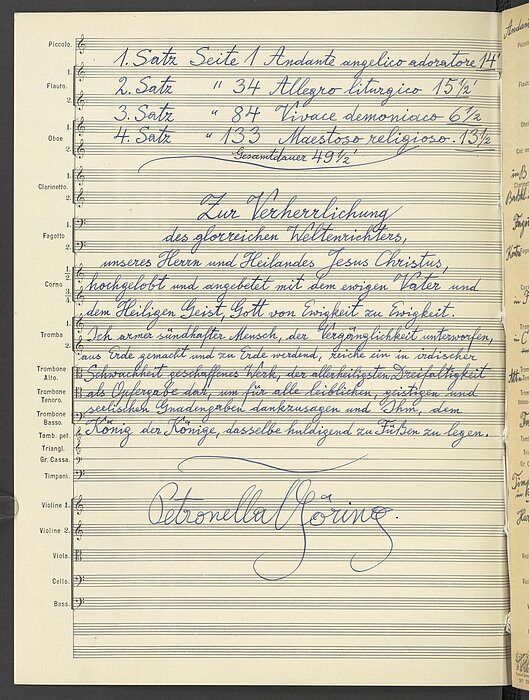 Piccolo.
1. Satz Seite 1 Andante angelico adoratore 14'
Flauto.
2. Satz " 34 Allegro liturgico 15½'
3. Satz " 84 Vivace demoniaco 6½
Oboe
4. Satz " 133 Maestoso religioso. 13½
Gesamtdauer 49½'
Clarinetto.
Zur Verherrlichung
Fagotto
des glorreichen Weltenrichters,
unseres Herrn und Heilandes Jesus Christus,
Corno
hochgelobt und angebetet mit dem ewigen Vater und
dem Heiligen Geist, Gott von Ewigkeit zu Ewigkeit.
Tromba
Ich armer sündhafter Mensch, der Vergänglichkeit unterworfen,
aus Erde gemacht und zu Erde werdend, reiche ein in irdischer
Trombone Alto.
Schwachheit geschaffenes Werk, der allerheiligsten Dreifaltigkeit
Trombone Tenoro.
als Opfergabe dar, um für alle leiblichen, geistigen und
seelischen Gnadengaben dankzusagen und Ihm, dem
Trombone Basso.
König der Könige, dasselbe huldigend zu Füßen zu legen.
Tamb. pet.
Triangl.
Gr. Cassa.
Timpani.
Violine 1.
Petronella Göring.
Violine 2.
Viola.
Cello.
Bass.